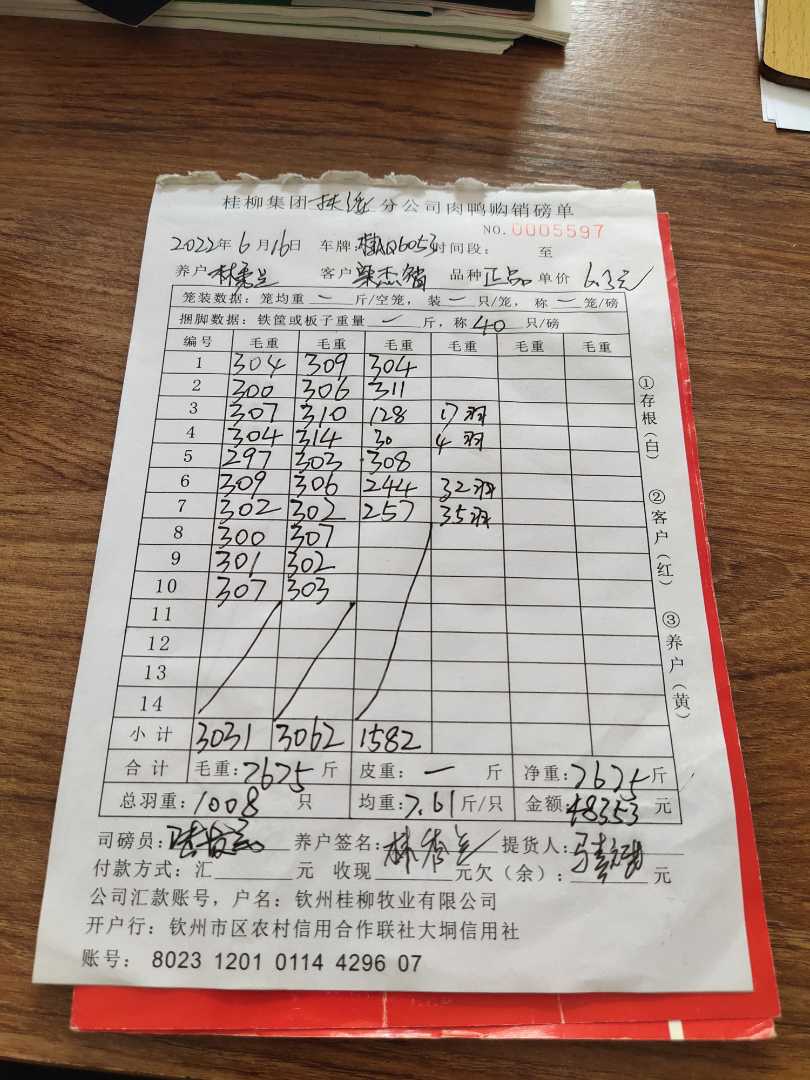 桂柳集团 扶绥 分公司肉鸭购销磅单
NO. 0005597
2022年6月16日 车牌:桂AQ6053 时间段: 至
养户 林秀兰 客户 梁杰锴 品种 正品 单价 6.3元
笼装数据: 笼均重 一 斤/空笼, 装 一 只/笼, 称 一 笼/磅
捆脚数据: 铁筐或板子重量 一 斤, 称 40 只/磅
编号 毛重 毛重 毛重 毛重 毛重 毛重
1 304 309 304
2 300 306 311
3 307 310 128 17羽
4 304 314 30 4羽
5 297 303 308
6 309 306 244 32羽
7 302 302 257 35羽
8 300 307
9 301 302
10 307 303
11
12
13
14
小计 3031 3062 1582
合计 毛重:7675 斤 皮重: 一 斤 净重:7675斤
总羽重:1008 只 均重:7.61斤/只 金额:48353 元
司磅员: 养户签名:林秀兰 提货人:
付款方式: 汇 元 收现 元欠(余): 元
公司汇款账号, 户名: 钦州桂柳牧业有限公司
开户行: 钦州市区农村信用合作联社大垌信用社
账号: 8023 1201 0114 4296 07
①存根(白)
②客户(红)
③养户(黄)